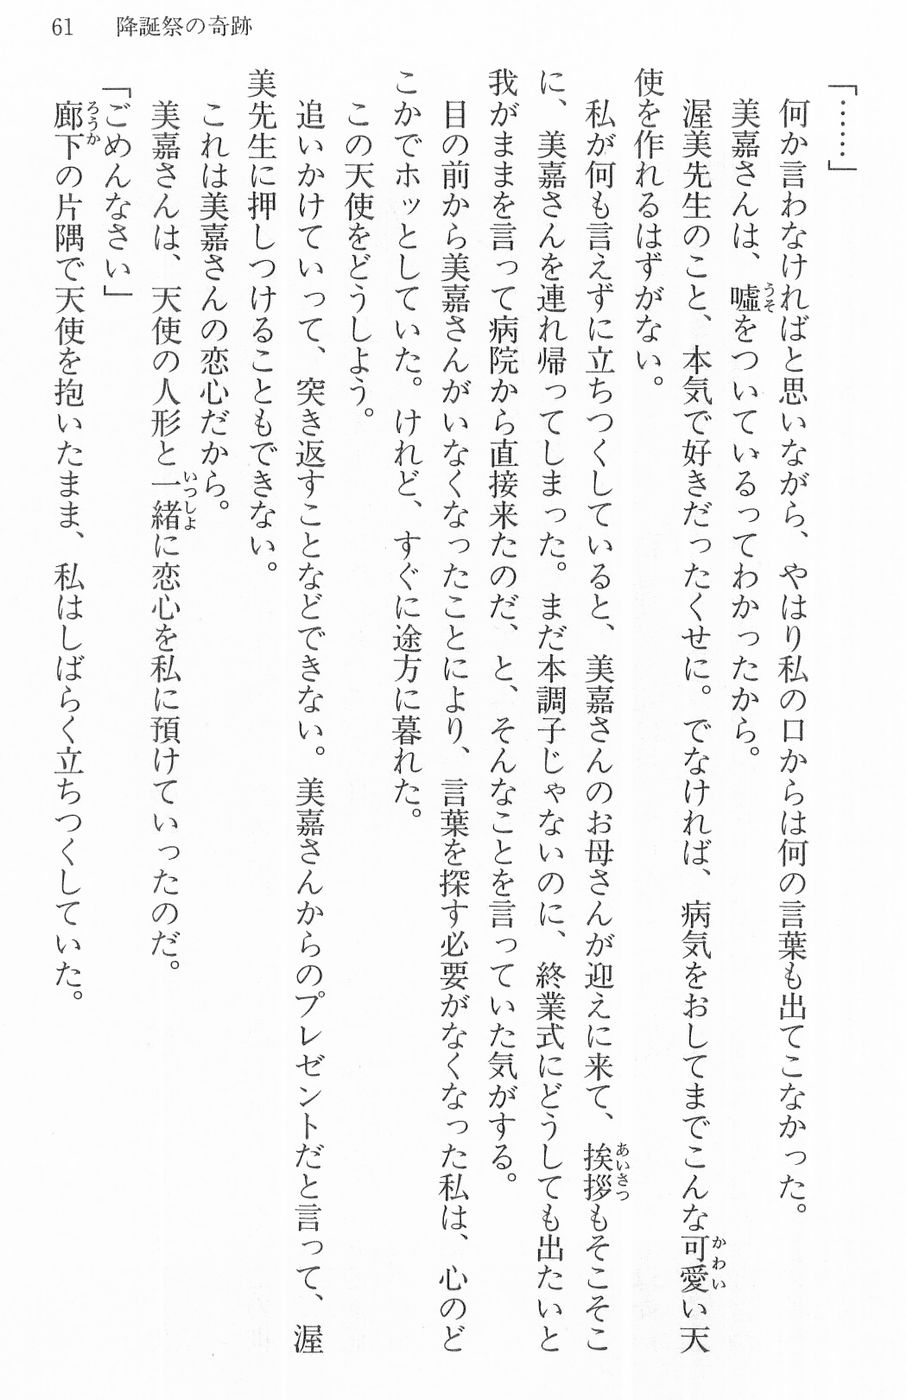 61　降誕祭の奇跡
「……」
何か言わなければと思いながら、やはり私の口からは何の言葉も出てこなかった。
美嘉さんは、嘘をついているってわかったから。
渥美先生のこと、本気で好きだったくせに。でなければ、病気をおしてまでこんな可愛い天
使を作れるはずがない。
私が何も言えずに立ちつくしていると、美嘉さんのお母さんが迎えに来て、挨拶もそこそこ
に、美嘉さんを連れ帰ってしまった。まだ本調子じゃないのに、終業式にどうしても出たいと
我がままを言って病院から直接来たのだ、と、そんなことを言っていた気がする。
目の前から美嘉さんがいなくなったことにより、言葉を探す必要がなくなった私は、心のど
こかでホッとしていた。けれど、すぐに途方に暮れた。
この天使をどうしよう。
追いかけていって、突き返すことなどできない。美嘉さんからのプレゼントだと言って、渥
美先生に押しつけることもできない。
これは美嘉さんの恋心だから。
美嘉さんは、天使の人形と一緒に恋心を私に預けていったのだ。
「ごめんなさい」
廊下の片隅で天使を抱いたまま、私はしばらく立ちつくしていた。